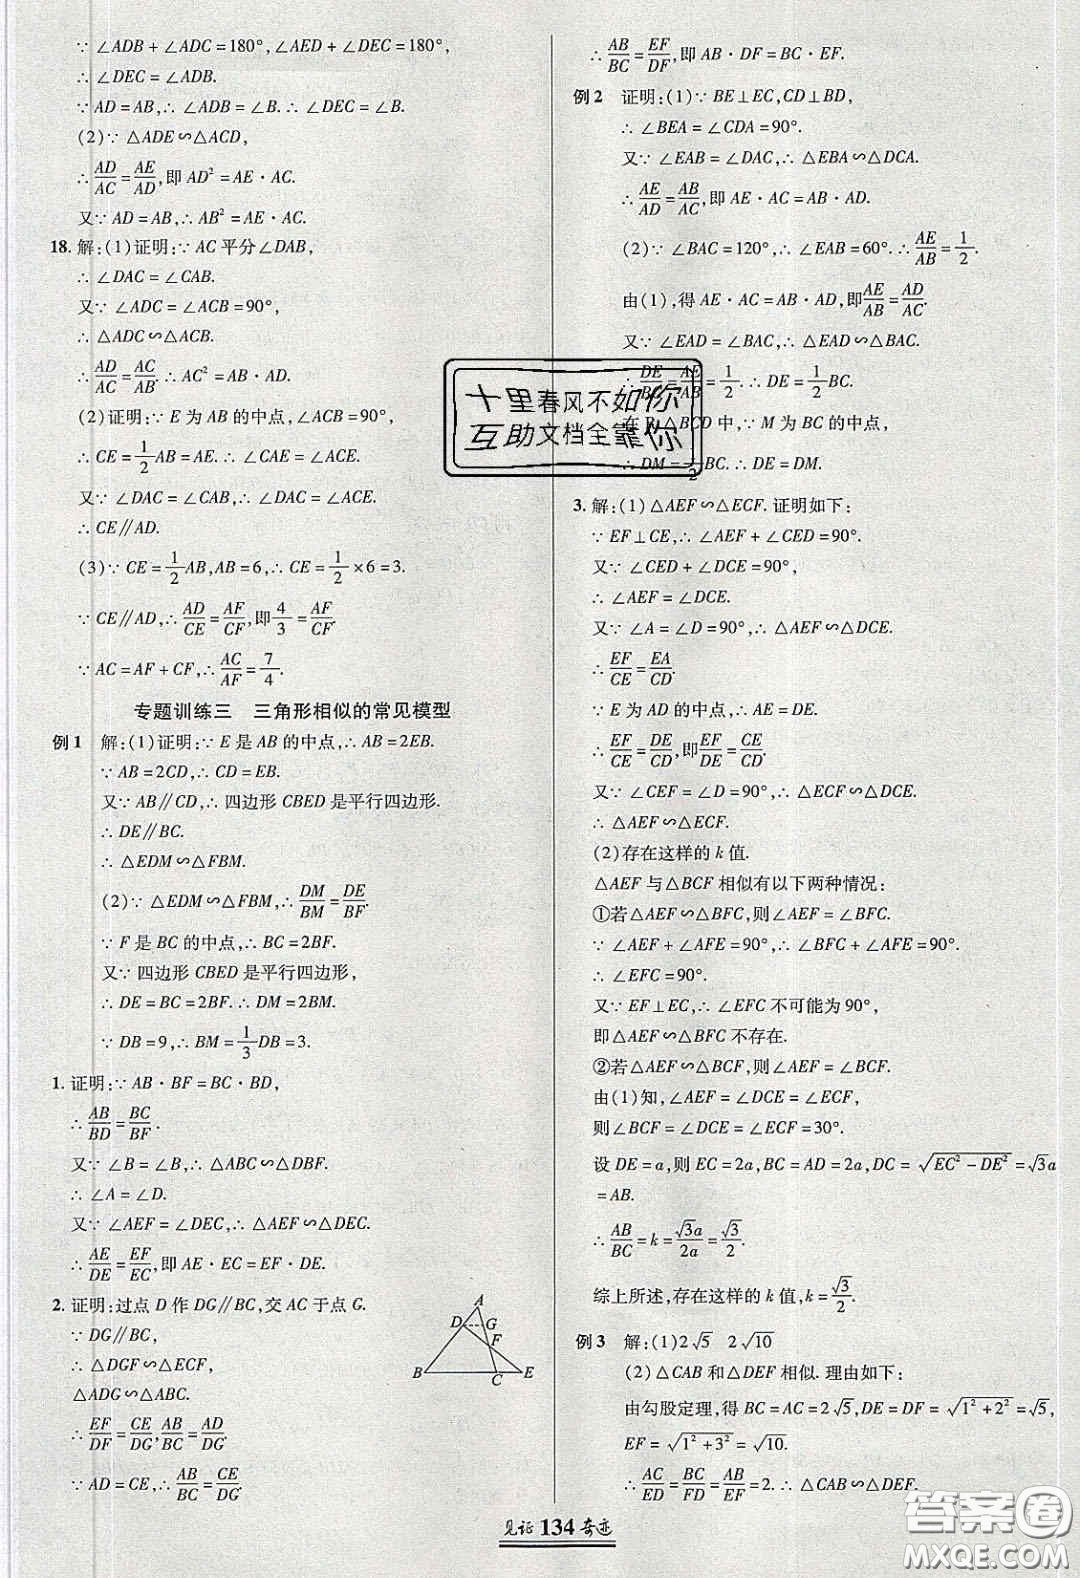 ∵ ∠ADB + ∠ADC = 180°, ∠AED + ∠DEC = 180°,
∴ ∠DEC = ∠ADB.
∵ AD = AB, ∴ ∠ADB = ∠B. ∴ ∠DEC = ∠B.
(2)∵ △ADE∽△ACD,
∴ AD/AC = AE/AD, 即 AD² = AE·AC.
又∵ AD = AB, ∴ AB² = AE·AC.
18. 解:(1)证明:∵ AC 平分∠DAB,
∴ ∠DAC = ∠CAB.
又∵ ∠ADC = ∠ACB = 90°,
∴ △ADC∽△ACB.
∴ AD/AC = AC/AB. ∴ AC² = AB·AD.
(2)证明:∵ E 为 AB 的中点, ∠ACB = 90°,
∴ CE = 1/2 AB = AE. ∴ ∠EAC = ∠ACE.
又∵ ∠DAC = ∠CAB, ∴ ∠DAC = ∠ACE.
∴ CE∥AD.
(3)∵ CE = 1/2 AB, AB = 6, ∴ CE = 1/2 × 6 = 3.
∵ CE∥AD, ∴ AD/CE = AF/CF, 即 4/3 = AF/CF.
∵ AC = AF + CF, ∴ AC/AF = 7/4.
专题训练三 三角形相似的常见模型
例 1 解:(1)证明:∵ E 是 AB 的中点, ∴ AB = 2EB.
∵ AB = 2CD, ∴ CD = EB.
又∵ AB∥CD, ∴ 四边形 CBED 是平行四边形.
∴ DE∥BC.
∴ △EDM∽△FBM.
(2)∵ △EDM∽△FBM, ∴ DM/BM = DE/BF.
∵ F 是 BC 的中点, ∴ BC = 2BF.
又∵ 四边形 CBED 是平行四边形,
∴ DE = BC = 2BF. ∴ DM = 2BM.
∵ DB = 9, ∴ BM = 1/3 DB = 3.
1. 证明:∵ AB·BF = BC·BD,
∴ AB/BD = BC/BF.
又∵ ∠B = ∠B, ∴ △ABC∽△DBF.
∴ ∠A = ∠D.
又∵ ∠AEF = ∠DEC, ∴ △AEF∽△DEC.
∴ AE/DE = EF/EC, 即 AE·EC = EF·DE.
2. 证明:过点 D 作 DG∥BC, 交 AC 于点 G.
∵ DG∥BC,
∴ △DGF∽△ECF,
△ADG∽△ABC.
∴ EF/DF = CE/DG, AB/BC = AD/DG.
∵ AD = CE, ∴ AB/BC = CE/DG.
A
D
G
F
B
C
E
∴ AB/BC = EF/DF, 即 AB·DF = BC·EF.
例 2 证明:(1)∵ BE⊥EC, CD⊥BD,
∴ ∠BEA = ∠CDA = 90°.
又∵ ∠EAB = ∠DAC, ∴ △EBA∽△DCA.
∴ AE/AD = AB/AC. ∴ AE·AC = AB·AD.
(2)∵ ∠BAC = 120°, ∴ ∠EAB = 60°. ∴ AE/AB = 1/2.
由(1), 得 AE·AC = AB·AD, 即 AE/AB = AD/AC.
又∵ ∠EAD = ∠BAC, ∴ △EAD∽△BAC.
∴ DE/BC = AE/AB = 1/2. ∴ DE = 1/2 BC.
在 Rt△BCD 中, ∵ M 为 BC 的中点,
∴ DM = 1/2 BC. ∴ DE = DM.
3. 解:(1)△AEF∽△ECF. 证明如下:
∵ EF⊥CE, ∴ ∠AEF + ∠CED = 90°.
又∵ ∠CED + ∠DCE = 90°,
∴ ∠AEF = ∠DCE.
又∵ ∠A = ∠D = 90°, ∴ △AEF∽△DCE.
∴ EF/CE = EA/CD.
∵ E 为 AD 的中点,
∴ EF/CE = DE/CD, 即 EF/DE = CE/CD.
又∵ ∠CEF = ∠D = 90°, ∴ △ECF∽△DCE.
∴ △AEF∽△ECF.
(2)存在这样的 k 值.
△AEF 与△BCF 相似有以下两种情况:
①若△AEF∽△BFC, 则∠AFE = ∠BFC.
∵ ∠AEF + ∠AFE = 90°, ∴ ∠BFC + ∠AFE = 90°.
∴ ∠EFC = 90°.
又∵ EF⊥EC, ∴ ∠EFC 不可能为 90°,
即△AEF∽△BFC 不存在.
②若△AEF∽△BCF, 则∠AEF = ∠BCF.
由(1)知, ∠AEF = ∠DCE = ∠ECF,
则∠BCF = ∠DCE = ∠ECF = 30°.
设 DE = a, 则 EC = 2a, BC = AD = 2a, DC = √(EC² − DE²) = √3a
= AB.
∴ AB/BC = k = √3a/2a = √3/2.
综上所述, 存在这样的 k 值, k = √3/2.
例 3 解:(1)2√5 2√10
(2)△CAB 和△DEF 相似. 理由如下:
由勾股定理, 得 BC = AC = 2√5, DE = DF = √(1² + 2²) = √5,
EF = √(1² + 3²) = √10.
∴ AC/ED = BC/FD = AB/EF = 2. ∴ △CAB∽△DEF.
十里春风不如你
互助文档全靠你
见证 134 奇迹
答案圈
MXQE.COM